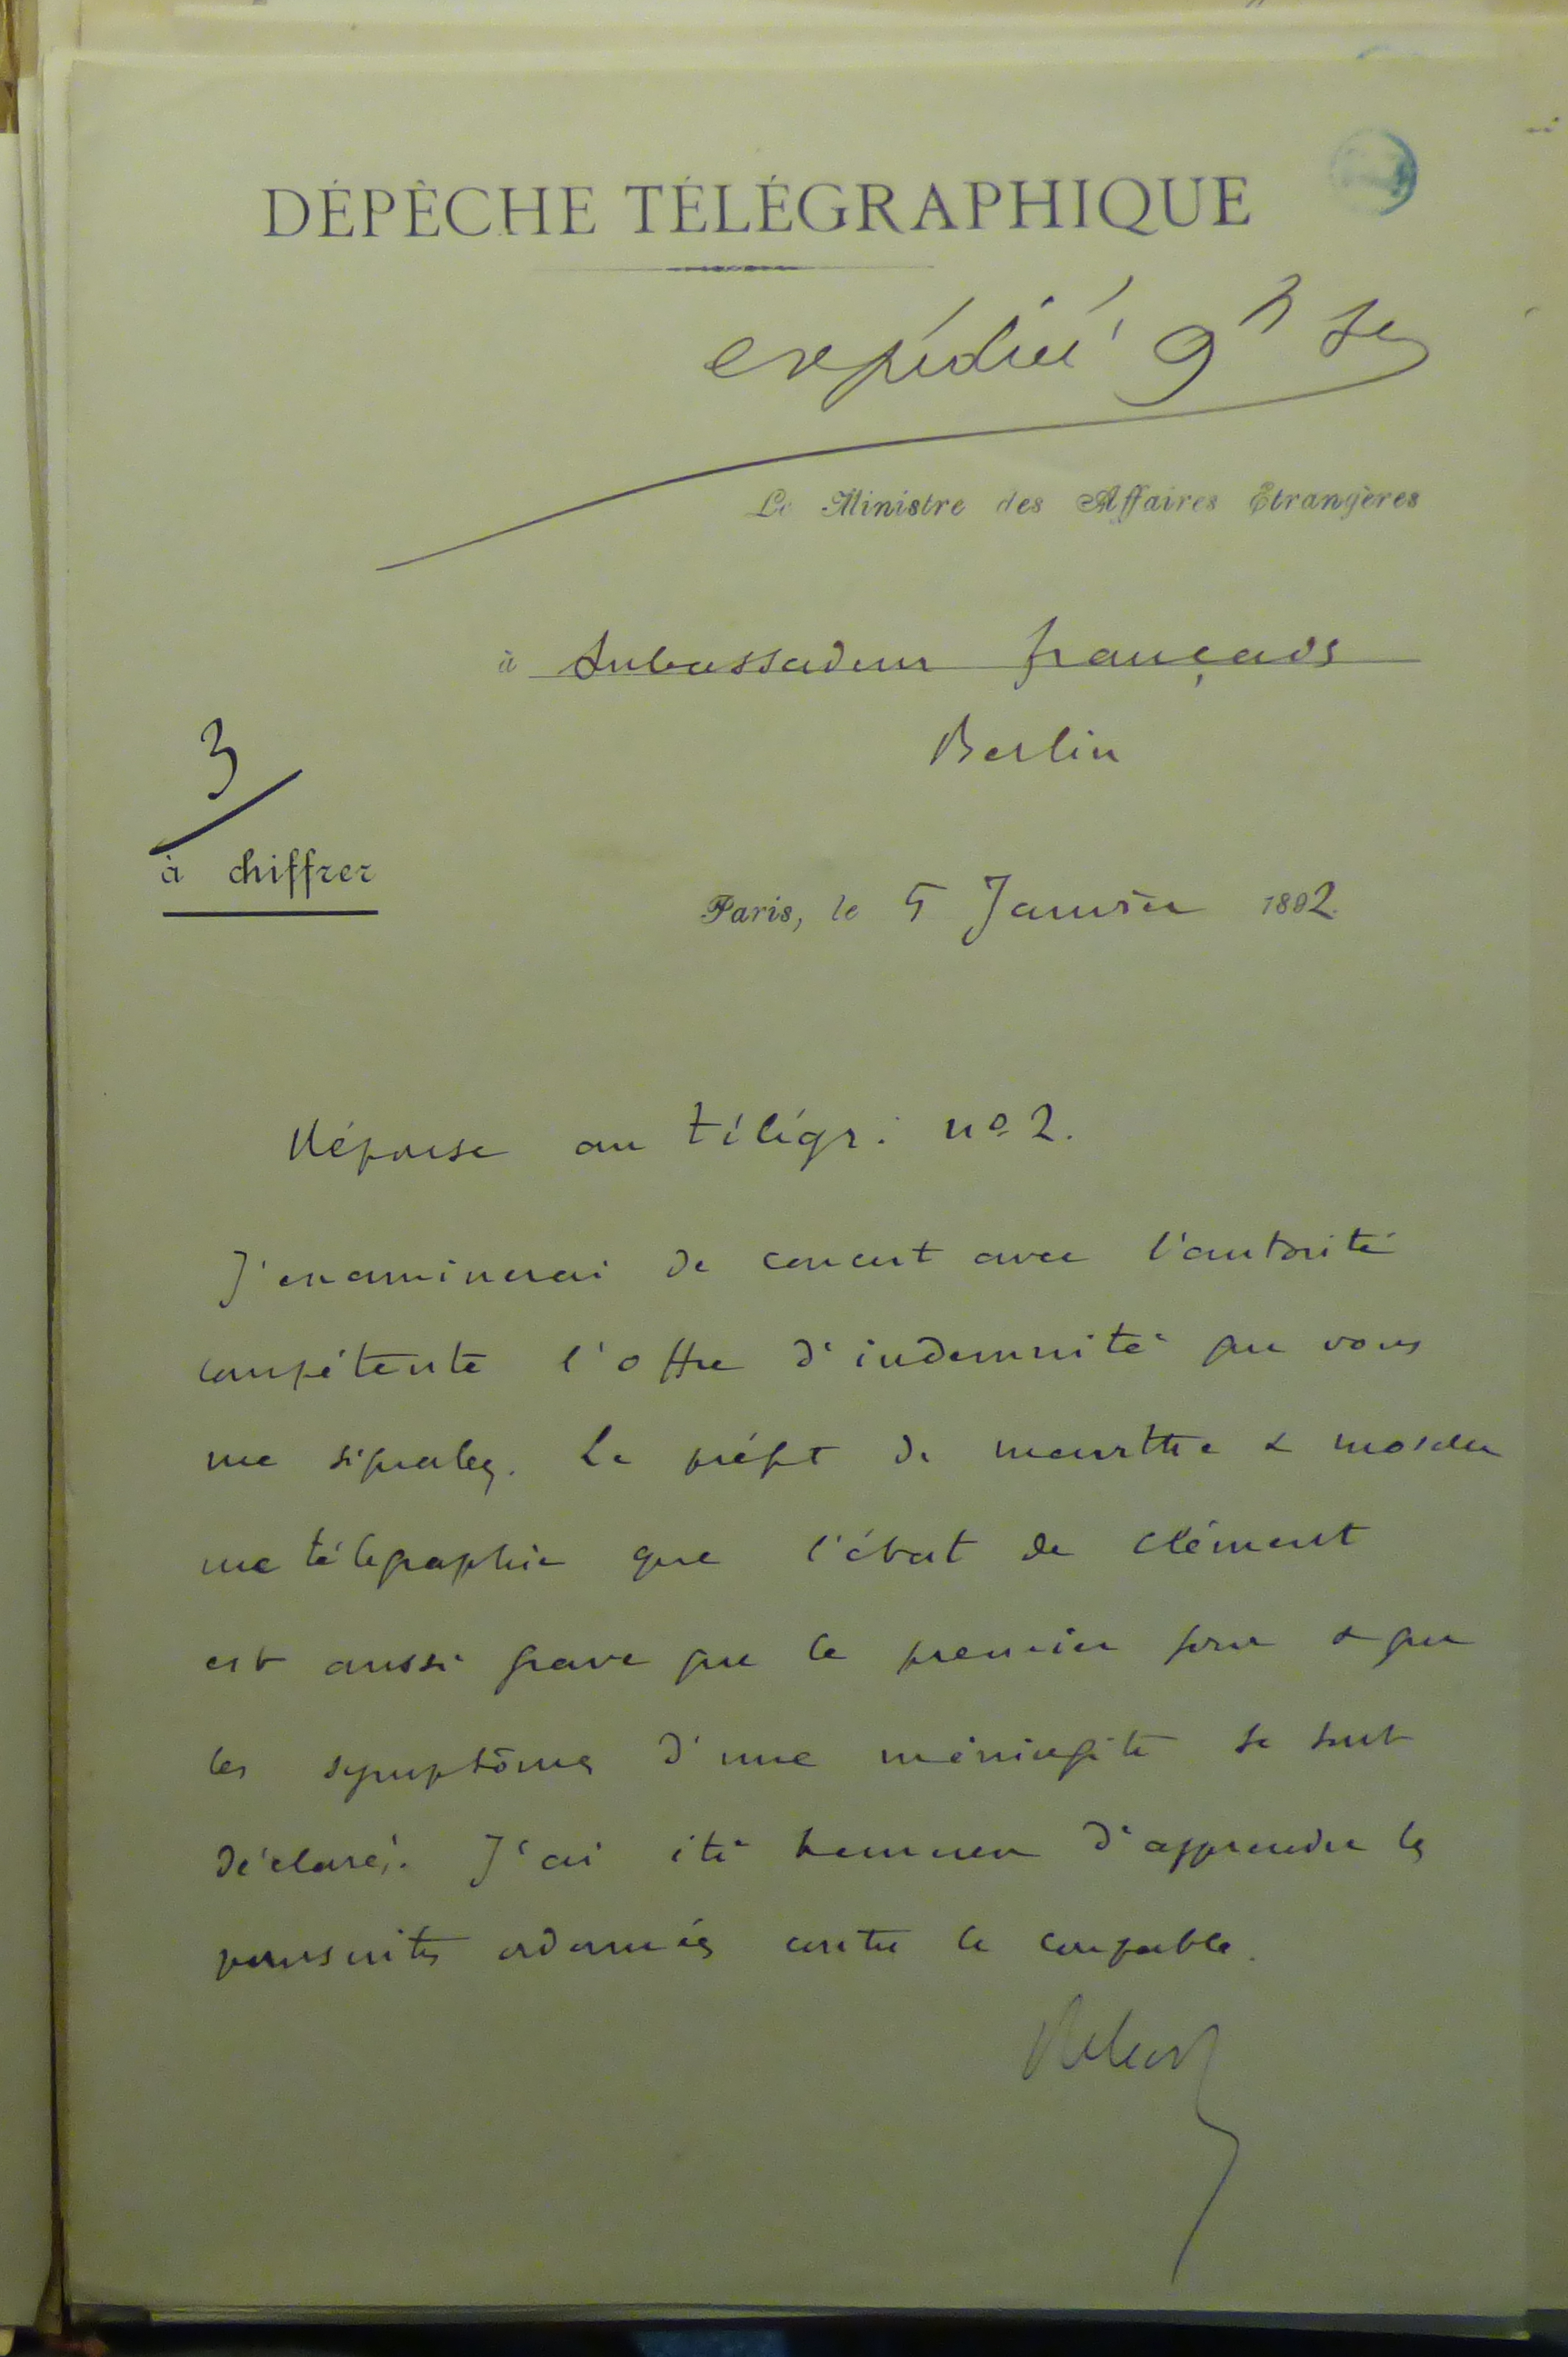 DÉPÊCHE TÉLÉGRAPHIQUE
expédié 9h
Le Ministre des Affaires Étrangères
à Ambassadeur français
Berlin
3
à chiffrer
Paris, le 5 Janvier 1892.
Réponse au télégr. nº 2.
J'examinerai de concert avec l'autorité
compétente l'offre d'indemnité que vous
me signalez. Le préft de meurthe & moselle
me télégraphie que l'état de Clément
est aussi grave que le premier jour & que
les symptômes d'une méningite se sont
déclarés. J'ai été heureux d'apprendre les
poursuites ordonnées contre le coupable.
Ribot